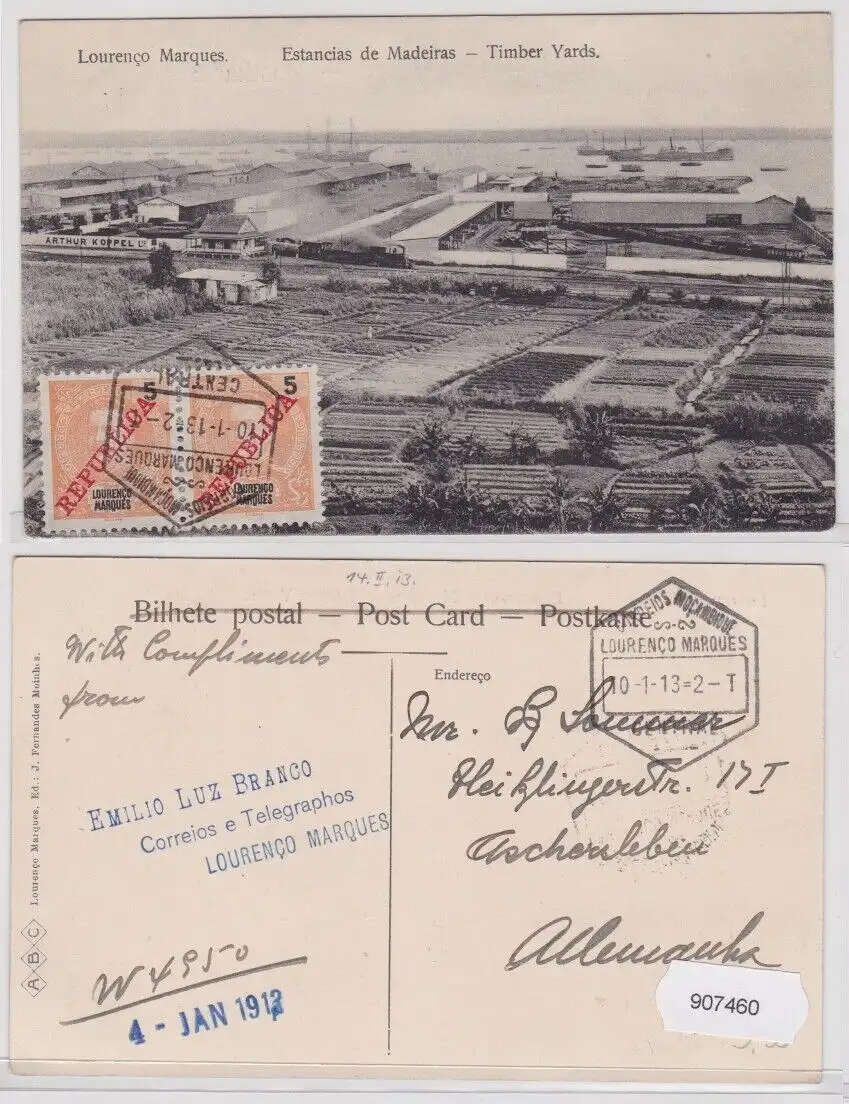 Lourenço Marques. Estancias de Madeiras — Timber Yards.
ARTHUR KOPPEL Ld
5 5
REPUBLICA REPUBLICA
LOURENÇO MARQUES LOURENÇO MARQUES
CENTRAL
10-1-13=2-T
LOURENÇO MARQUES
CORREIOS MOÇAMBIQUE
14.II.13.
Bilhete postal — Post Card — Postkarte
With Compliments
from
EMILIO LUZ BRANCO
Correios e Telegraphos
LOURENÇO MARQUES
W 4950
4 - JAN 1913
Lourenço Marques. Ed.: J. Fernandes Moinhos.
ABC
CORREIOS MOÇAMBIQUE
LOURENÇO MARQUES
10-1-13=2-T
CENTRAL
Endereço
Mr. Sommer
17 I
Aschersleben
Allemanha
907460